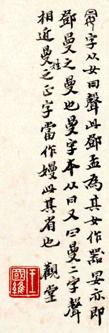 字从女聲此鄧孟為其女作器妟亦即
鄧曼之曼也曼字本从又曼二字聲
相近曼姓之正字當作嫚此其省也 觀堂
王國維